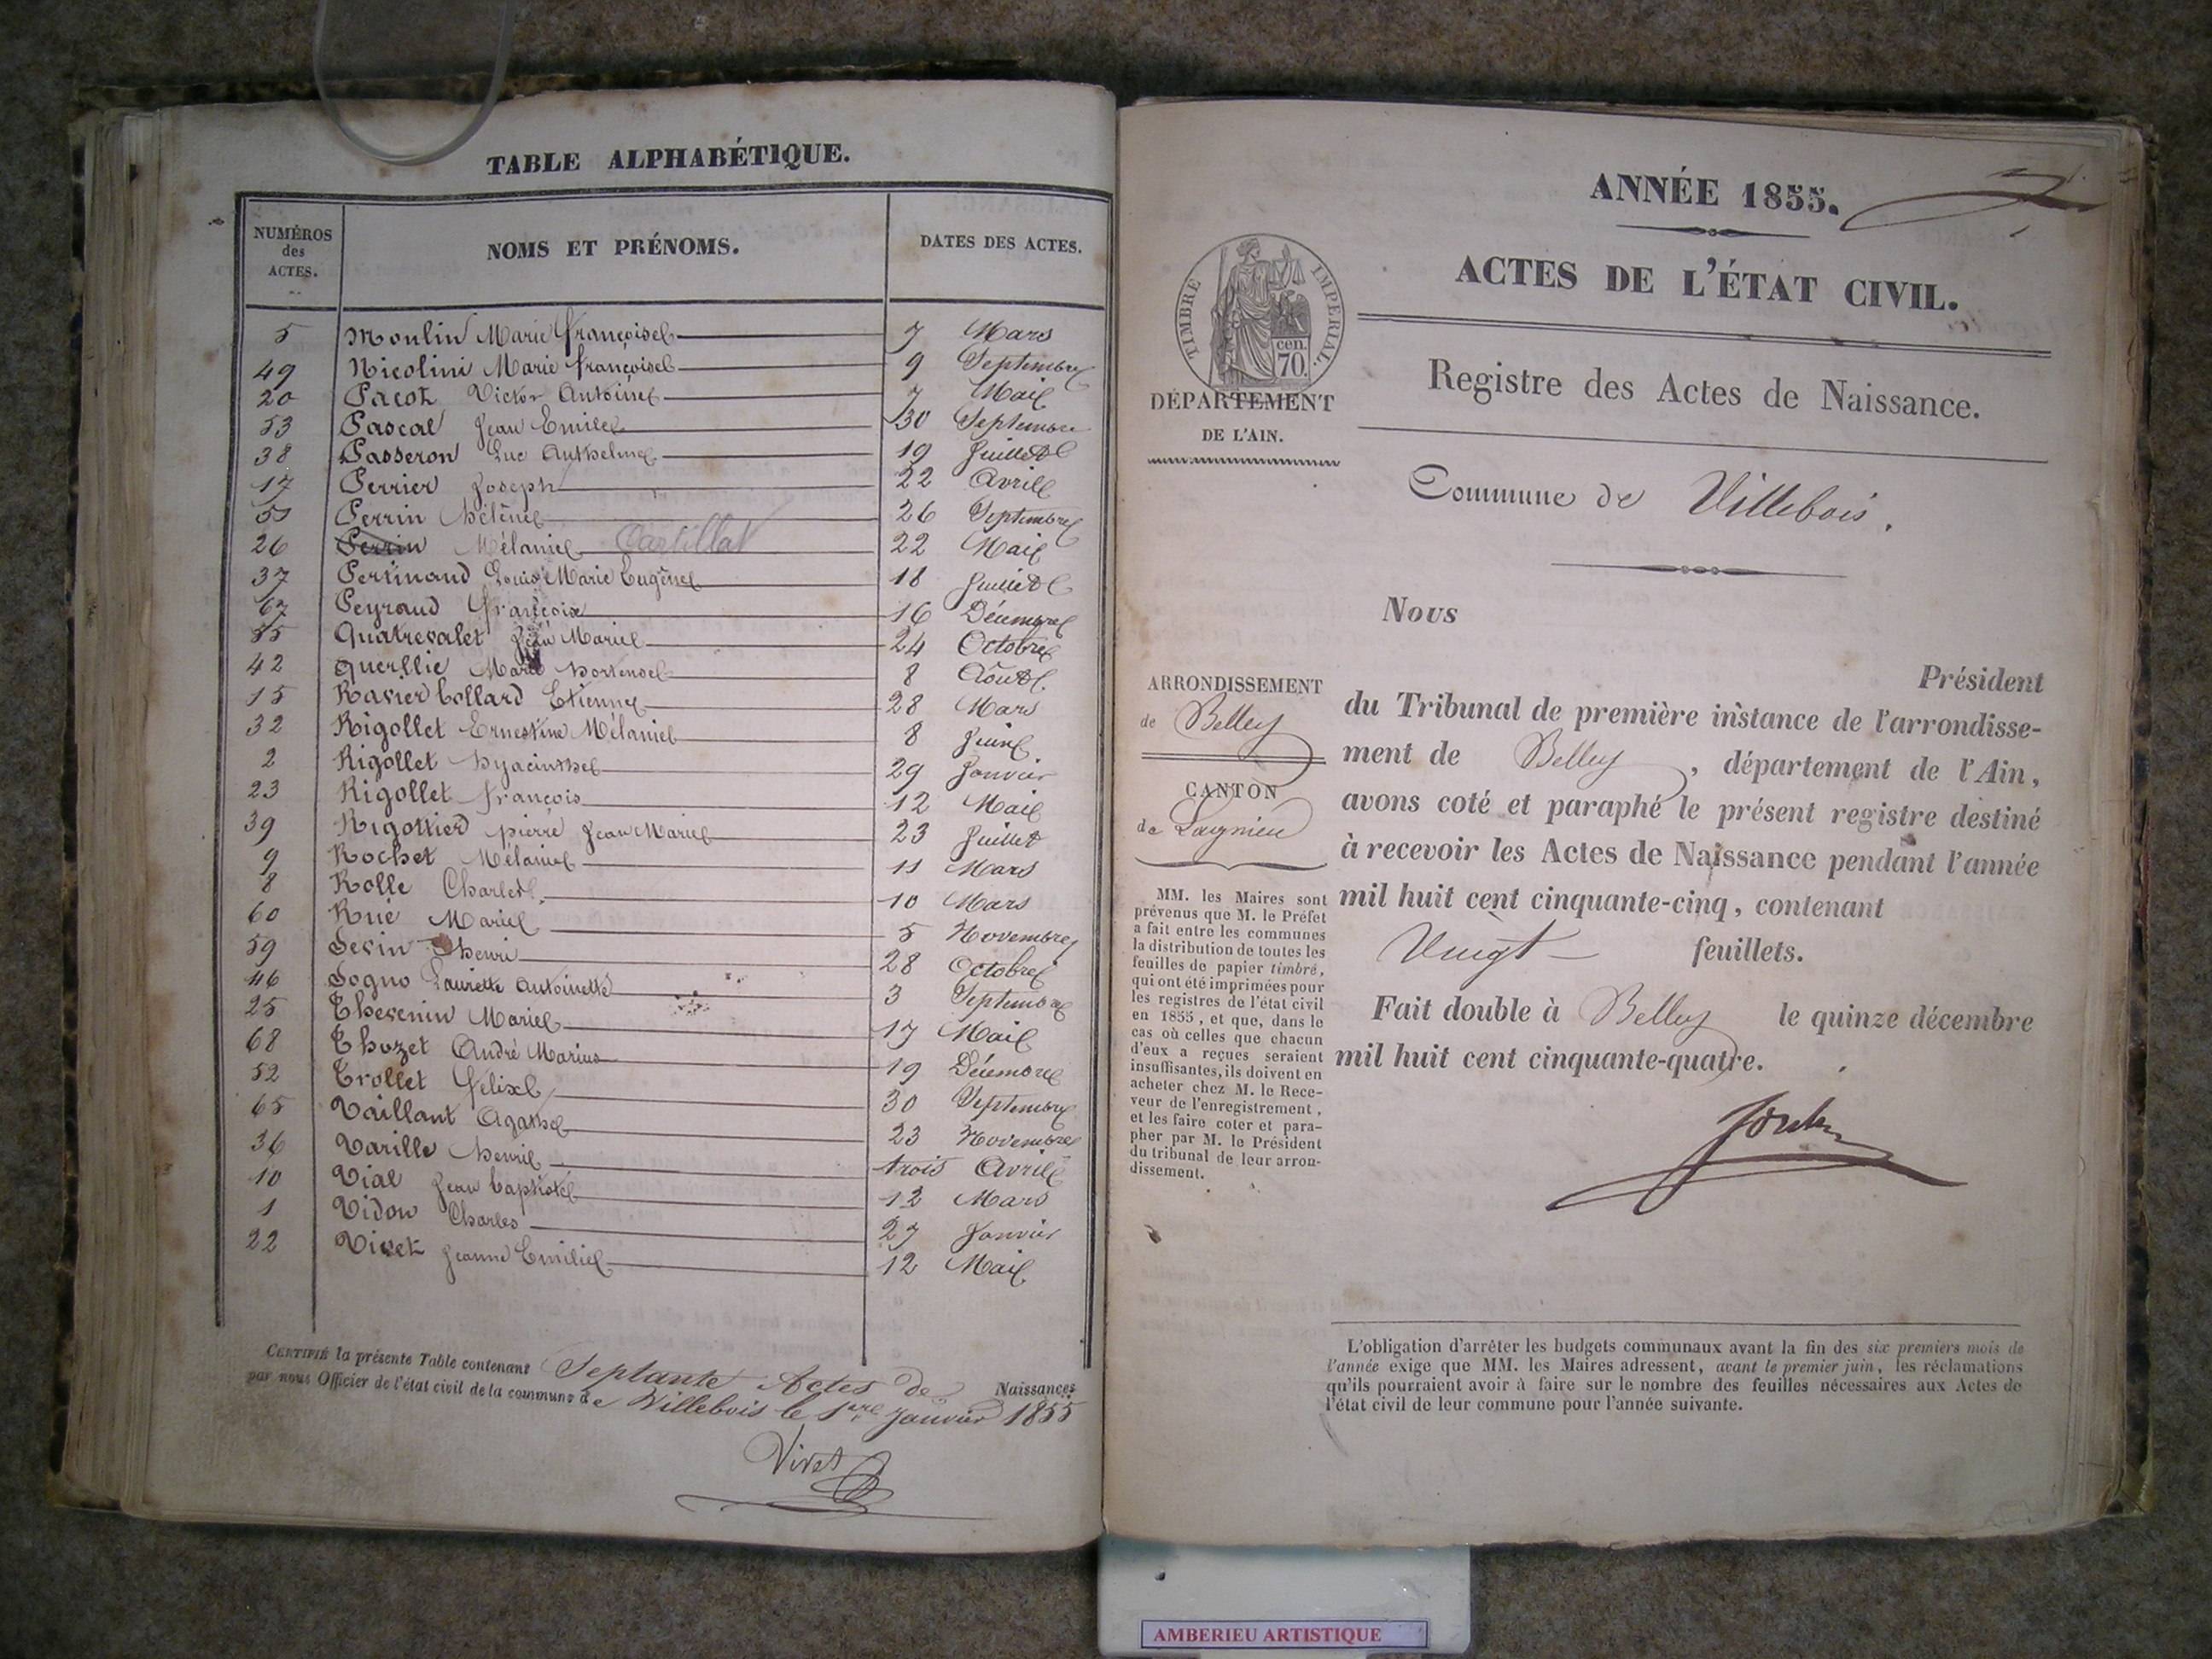 TABLE ALPHABÉTIQUE.
NUMÉROS des ACTES. NOMS ET PRÉNOMS. DATES DES ACTES.
5 Moulin Marie Françoise 7 Mars
49 Nicolini Marie Françoise 9 Septembre
20 Pacot Victor Antoine 7 Mai
53 Pascal Jean Emile 30 Septembre
38 Passeron Luc Anthelme 19 Juillet
17 Perrier Joseph 22 Avril
Perrin Hélène 26 Septembre
26 Perrin Mélanie Cartillat 22 Mai
37 Pertinand Louis Marie Eugène 18 Juillet
67 Peyraud François 16 Décembre
55 Quatrevalet Jean Marie 24 Octobre
42 Querllie Marie hortense 8 Août
15 Ravier Collard Etienne 28 Mars
32 Rigollet Ernestine Mélanie 8 Juin
2 Rigollet hyacinthe 29 Janvier
23 Rigollet François 12 Mai
39 Rigottier pierre Jean Marie 23 Juillet
9 Rochet Mélanie 11 Mars
8 Rolle Charles 10 Mars
60 Rué Marie 5 Novembre
59 Sevin henri 28 Octobre
46 Sogno Laurette Antoinette 3 Septembre
25 Thevenin Marie 17 Mai
68 Thozet André Marius 19 Décembre
52 Trollet Félix 30 Septembre
65 Vaillant Agathe 23 Novembre
36 Varille henri trois Avril
10 Vial Jean baptiste 12 Mars
1 Vidon Charles 27 Janvier
22 Vivet Jeanne Emilie 12 Mai
CERTIFIÉ la présente Table contenant Septante Actes de Naissances
par nous Officier de l'état civil de la commune de Villebois le 1er Janvier 1855
Vivet
ANNÉE 1855.
ACTES DE L'ÉTAT CIVIL.
TIMBRE IMPÉRIAL.
cen.
70.
Registre des Actes de Naissance.
DÉPARTEMENT
DE L'AIN.
Commune de Villebois.
Nous
Président
du Tribunal de première instance de l'arrondisse-
ment de Belley, département de l'Ain,
avons coté et paraphé le présent registre destiné
à recevoir les Actes de Naissance pendant l'année
mil huit cent cinquante-cinq, contenant
Vingt feuillets.
Fait double à Belley le quinze décembre
mil huit cent cinquante-quatre.
ARRONDISSEMENT
de Belley
CANTON
de Lagnieu
MM. les Maires sont
prévenus que M. le Préfet
a fait entre les communes
la distribution de toutes les
feuilles de papier timbré,
qui ont été imprimées pour
les registres de l'état civil
en 1855, et que, dans le
cas où celles que chacun
d'eux a reçues seraient
insuffisantes, ils doivent en
acheter chez M. le Rece-
veur de l'enregistrement,
et les faire coter et para-
pher par M. le Président
du tribunal de leur arron-
dissement.
L'obligation d'arrêter les budgets communaux avant la fin des six premiers mois de
l'année exige que MM. les Maires adressent, avant le premier juin, les réclamations
qu'ils pourraient avoir à faire sur le nombre des feuilles nécessaires aux Actes de
l'état civil de leur commune pour l'année suivante.
AMBERIEU ARTISTIQUE